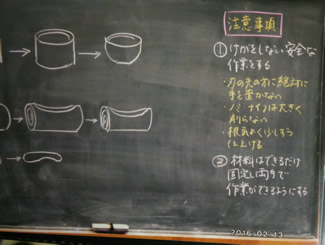 注意事項
① けがをしない安全な
作業をする
・刃の先の方に絶対に
手を置かない
・ナイフは大きく
削らない
・根気よく少しずつ
仕上げる
② 材料はできるだけ
固定し両手で
作業ができるようにする
2016.02.13